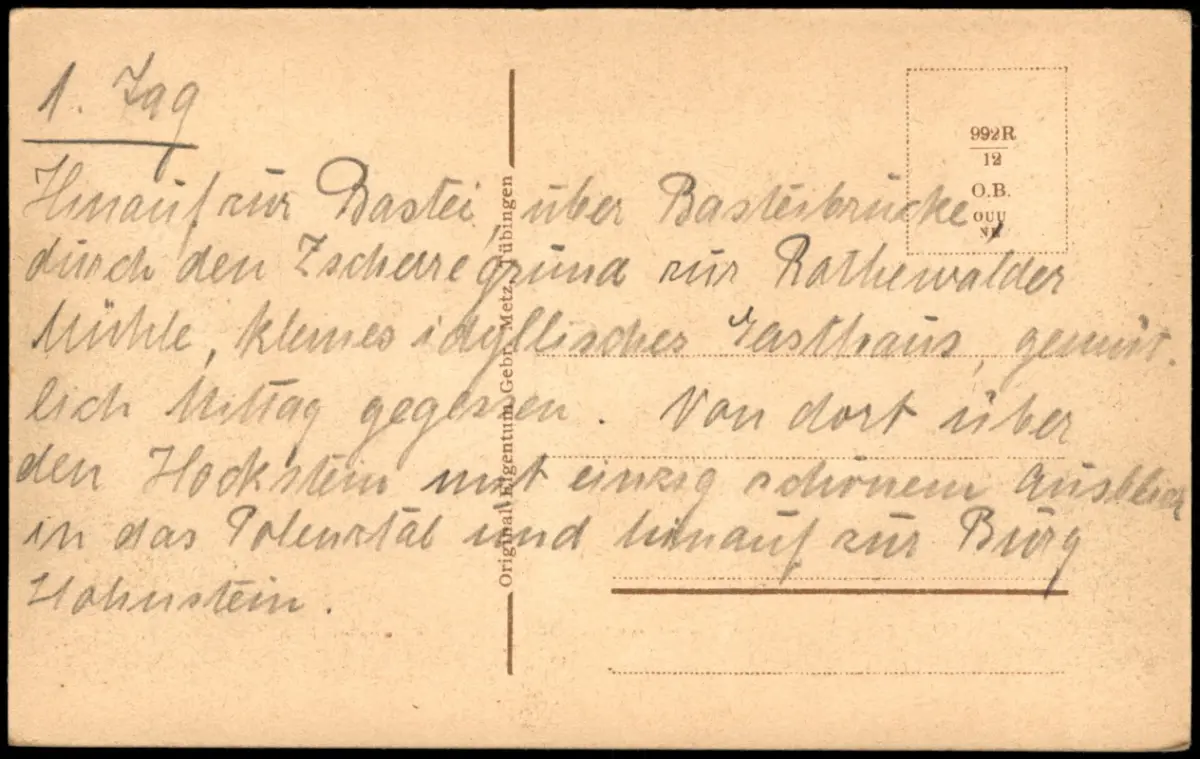 1. Tag
Hinauf zur Bastei, über Basteibrücke,
durch den Zscherregrund zur Rathewalder
Mühle, kleines idyllisches Gasthaus, gemüt-
lich Mittag gegessen. Von dort über
den Hockstein mit einzig schönem Ausblick
in das Polenztal und hinauf zur Burg
Hohnstein.
Original-Eigentum Gebr. Metz, Tübingen
992R
12
O.B.